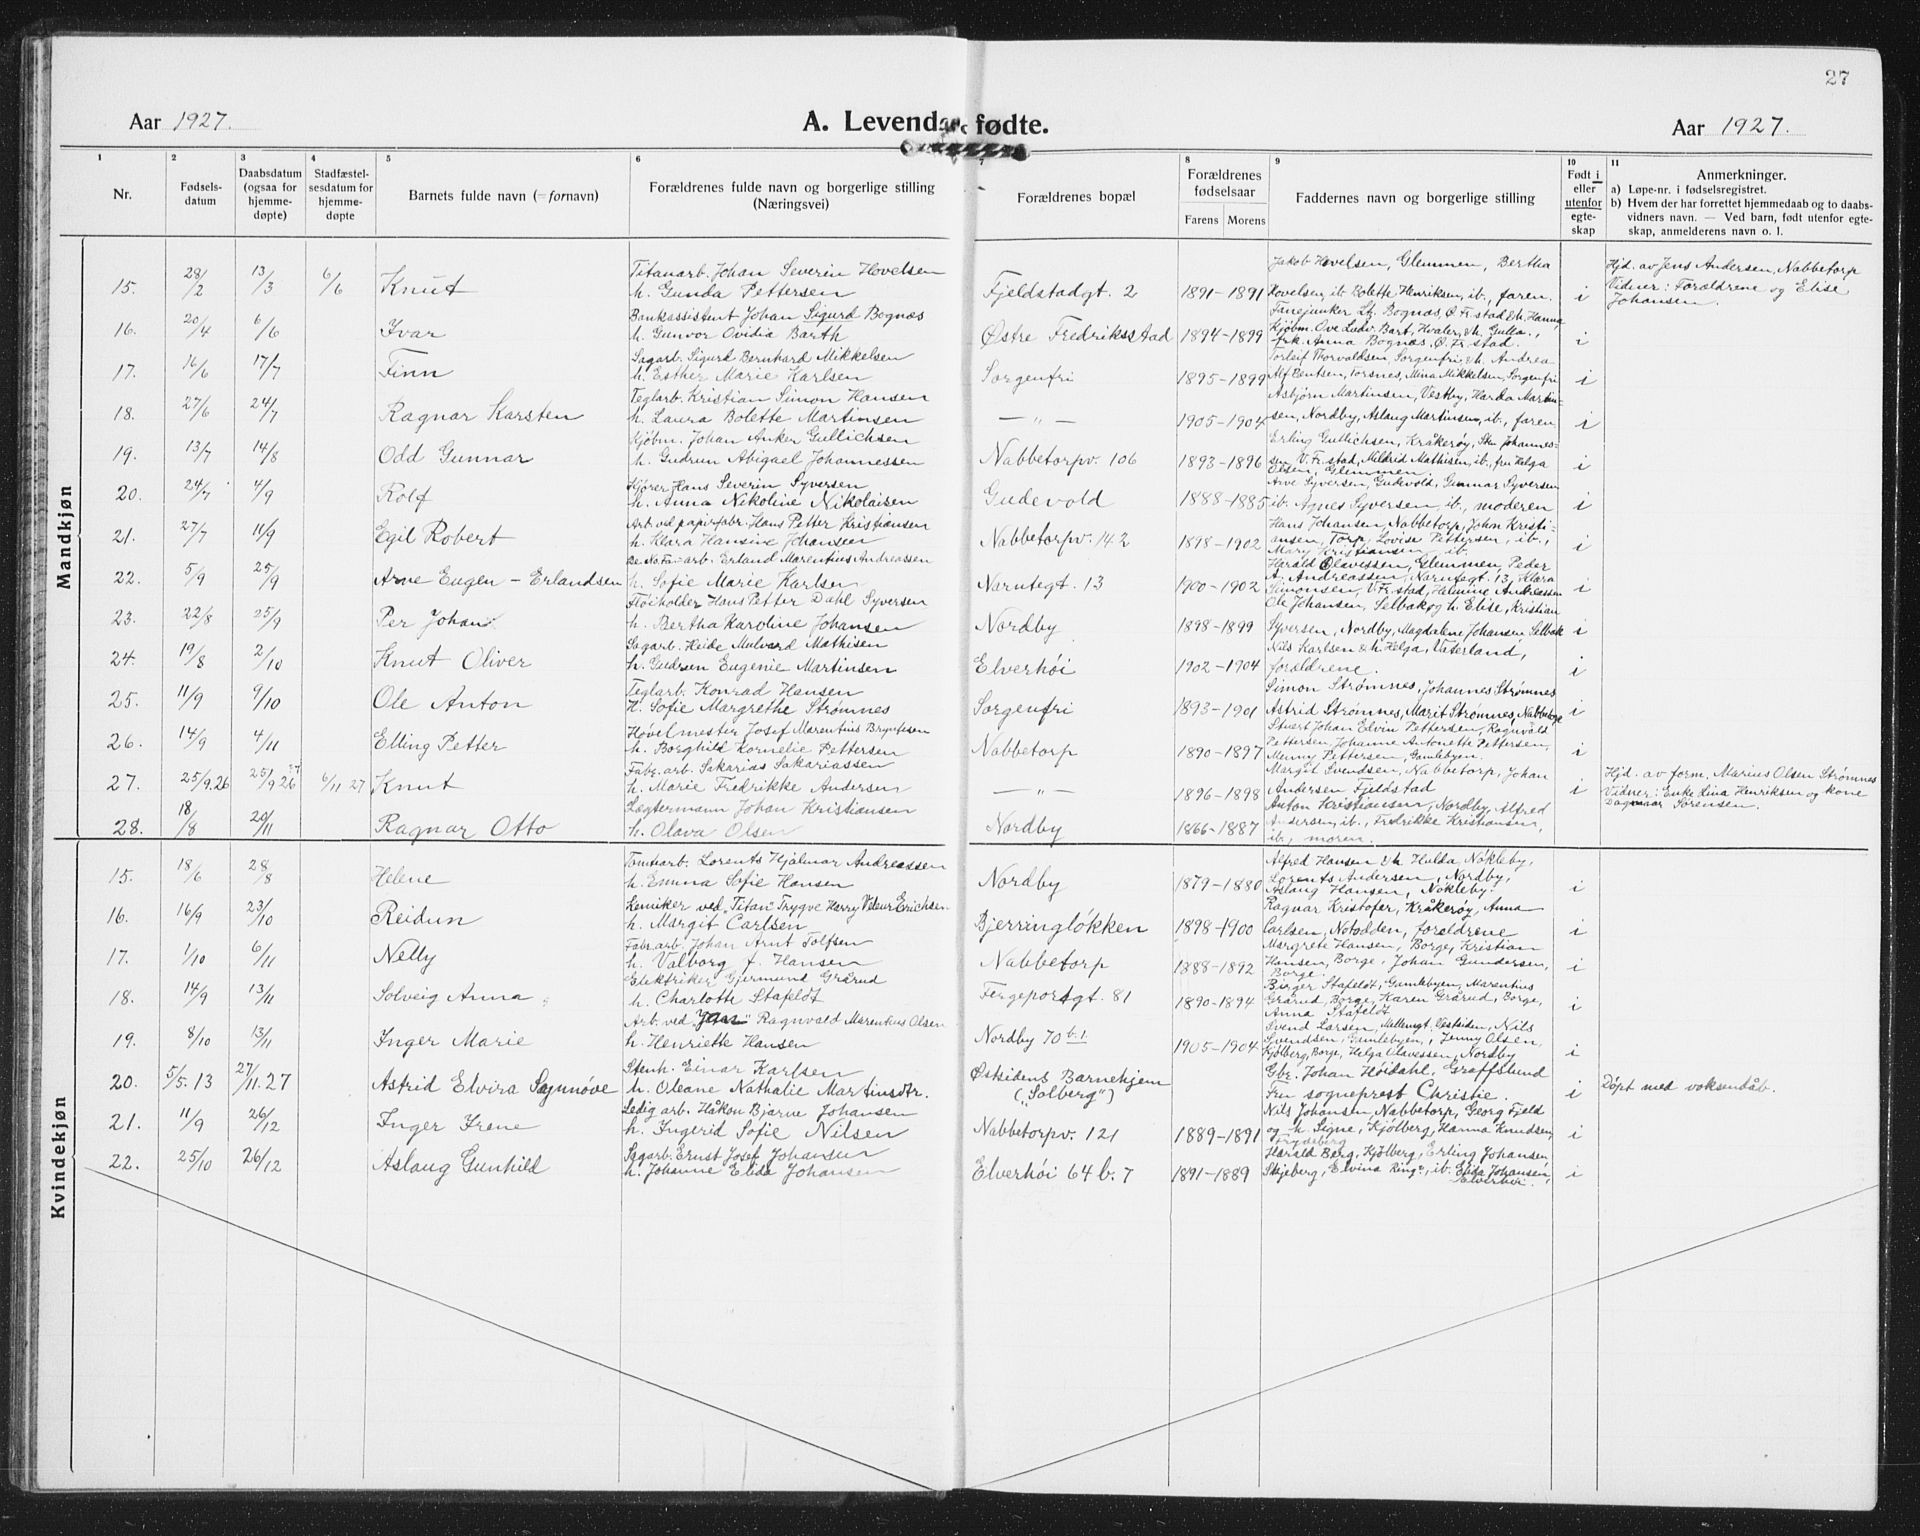 27
Aar 1927.
A. Levende fødte.
Aar 1927.
1 2 3 4 5 6 7 8 9 10 11
Nr.
Fødsels-
datum
Daabsdatum
(ogsaa for
hjemme-
døpte)
Stadfæstel-
sesdatum for
hjemme-
døpte
Barnets fulde navn (= fornavn)
Forældrenes fulde navn og borgerlige stilling
(Næringsvei)
Forældrenes bopæl
Forældrenes
fødselsaar
Farens Morens
Faddernes navn og borgerlige stilling
Født i
eller
utenfor
egte-
skap
Anmerkninger.
a) Løpe-nr. i fødselsregistret.
b) Hvem der har forrettet hjemmedaab og to daabs-
vidners navn. — Ved barn, født utenfor egte-
skap, anmelderens navn o. l.
Mandkjøn
15. 28/2 13/3 6/6 Knut
Titanarb. Johan Severin Hovelsen
h. Gunda Pettersen
Fjeldstadgt. 2 1891-1891
Jakob Hovelsen, Glemmen, Bertha
Hovelsen, ib. Bolette Henriksen, ib., faren.
i
Hjd. av Jens Andersen, Nabbetorp
Vidner: Forældrene og Elise
Johansen.
16. 20/4 6/6 Ivar
Bankassistent Johan Sigurd Bognæs
h. Gunvor Ovidia Barth
Østre Fredriksstad 1894-1899
Fanejunker Bognæs, Ø. Fr.stad & h. Hanna,
Kjøbm. Ove Ludv. Bart, Hvaler, & h. Gulla,
frk. Anna Bognæs, Ø. Fr.stad.
i
17. 16/6 17/7 Finn
Sagarb. Sigurd Bernhard Mikkelsen
h. Esther Marie Karlsen
Sorgenfri 1895-1899
Torleif Thorvaldsen, Sorgenfri & h. Andrea
Alf Bentsen, Torsnes, Mina Mikkelsen, Sorgenfri
i
18. 27/6 24/7 Ragnar Karsten
Teglarb. Kristian Simon Hansen
h. Laura Bolette Martinsen
— " — 1905-1904
Asbjørn Martinsen, Vestby, Harda Martin-
sen, Nordby, Aslaug Martinsen, ib., faren
i
19. 13/7 14/8 Odd Gunnar
Kjøbm. Johan Anker Gullichsen
h. Gudrun Abigael Johannessen
Nabbetorpv. 106 1893-1896
Erling Gullichsen, Kråkerøy, Johannes-
sen V. Fr.stad, Mildrid Mathisen, ib., fru Helga
Olsen, Glemmen.
i
20. 24/7 4/9 Rolf
Kjører Hans Severin Syversen
h. Anna Nikoline Nikolaisen
Gudevold 1888-1885
Arve Syversen, Gudevold, Gunnar Syversen
ib. Agnes Syversen, ib., moderen
i
21. 27/7 11/9 Egil Robert
Arb. ved papirfabr. Hans Petter Kristiansen
h. Klara Hansine Johansen
Nabbetorpv. 142 1898-1902
Hans Johansen, Nabbetorp, John Kristi-
ansen, Torp, Lovise Pettersen, ib.,
Mary Kristiansen, ib.
i
22. 5/9 25/9 Arne Eugen - Erlandsen
De-No-Fa-arb. Erland Marentius Andreassen
h. Sofie Marie Karlsen
Narntegt. 13 1900-1902
Harald Olavessen, Glemmen, Peder
A. Andreassen, Narntegt. 13, Klara
Simonsen, V. Fr.stad, Helmine Andreassen
i
23. 22/8 25/9 Per Johan
Fløiholder Hans Petter Dahl Syversen
h. Bertha Karoline Johansen
Nordby 1898-1899
Ole Johansen, Selbak og h. Elise, Kristian
Syversen, Nordby, Magdalene Johansen Selbak
i
24. 19/8 2/10 Knut Oliver
Sagarb. Heide Mulvard Mathisen
h. Gudrun Eugenie Martinsen
Elverhøi 1902-1904
Nils Karlsen & h. Helga, Vaterland,
forældrene.
i
25. 11/9 9/10 Ole Anton
Teglarb. Konrad Hansen
h. Sofie Margrethe Strømnes
Sorgenfri 1893-1901
Simon Strømnes, Johannes Strømnes
Astrid Strømnes, Marit Strømnes, Nabbetorp
i
26. 14/9 4/11 Elling Petter
Høvelmester Josef Marentius Brynfesen
h. Borghild Kornelie Pettersen
Nabbetorp 1890-1897
Stuert Johan Elvin Pettersen, Ragnvald
Pettersen, Johanne Antonette Pettersen,
Menny Pettersen, Gamlebyen.
i
27. 25/9.26 25/9 26 27 6/11 27 Knut
Fabr. arb. Sakarias Sakariassen
h. Marie Fredrikke Andersen
— " — 1896-1898
Margit Svendsen, Nabbetorp, Johan
Andersen Fjeldstad
i
Hjd. av form. Marius Olsen Strømnes
Vidner: Enke Lina Henriksen og kone
Dagmaar Sørensen.
28. 18/8 20/11 Ragnar Otto
Lægtermann Johan Kristiansen
h. Olava Olsen
Nordby 1866-1887
Anton Kristiansen, Nordby, Alfred
Andersen, ib., Fredrikke Kristiansen,
ib., moren.
Kvindekjøn
15. 18/6 28/8 Helene
Tomtarb. Lorents Hjalmar Andreassen
h. Emma Sofie Hansen
Nordby 1879-1880
Alfred Hansen & h. Hulda, Nökleby,
Lorents Andersen, Nordby,
Aslaug Hansen, Nökleby.
i
16. 16/9 23/10 Reidun
Kemiker ved "Titan" Trygve Harry Erichsen
h. Margit Carlsen
Bjerringløkken 1898-1900
Ragnar Kristofer, Kråkerøy, Anna
Carlsen, Notodden, forældrene
i
17. 1/10 6/11 Nelly
Fabr. arb. Johan Arnt Tolfsen
h. Valborg f. Hansen
Nabbetorp 1888-1892
Margrete Hansen, Borge, Kristian
Hansen, Borge, Johan Gundersen,
Borge.
i
18. 14/9 13/11 Solveig Anna
Elektriker Gjermund Grårud
h. Charlotte Stafeldt
Fergeportgt. 81 1890-1894
Birger Stafeldt, Gamlebyen, Marentius
Grårud, Borge, Karen Grårud, Borge,
Anna Stafeldt
i
19. 8/10 13/11 Inger Marie
Arb. ved Ragnvald Marenthius Olsen
h. Henriette Hansen
Nordby 70 b.1 1905-1904
Svend Larsen, Mellemgt. Vestsiden, Nils
Svendsen, Gamlebyen, Jenny Olsen,
Kjølberg, Borge, Helga Olavessen, Nordby
i
20. 5/5.13 27/11.27 Astrid Elvira Synnøve
Stenh. Einar Karlsen
h. Oleane Nathalie Martinsdtr.
Østsidens Barnehjem
("Solberg")
Gbr. Johan Høidahl, Græfflund
Fru sogneprest Christie.
i
Döpt med voksendåb.
21. 11/9 26/12 Inger Irene
Ledig arb. Håkon Bjarne Johansen
h. Ingerid Sofie Nilsen
Nabbetorpv. 121 1889-1891
Nils Johansen, Nabbetorp, Georg Fjeld
og h. Signe, Kjølberg, Hanna Knudsen,
i
22. 25/10 26/12 Aslaug Gunhild
Sagarb. Ernst Josef Johansen
h. Johanne Elida Johansen
Elverhöi 64 b. 7 1891-1889
Harald Berg, Kjölberg, Erling Johansen
Skjeberg, Elvina Ring, ib. Elida Johansen,
Elverhöi.
i